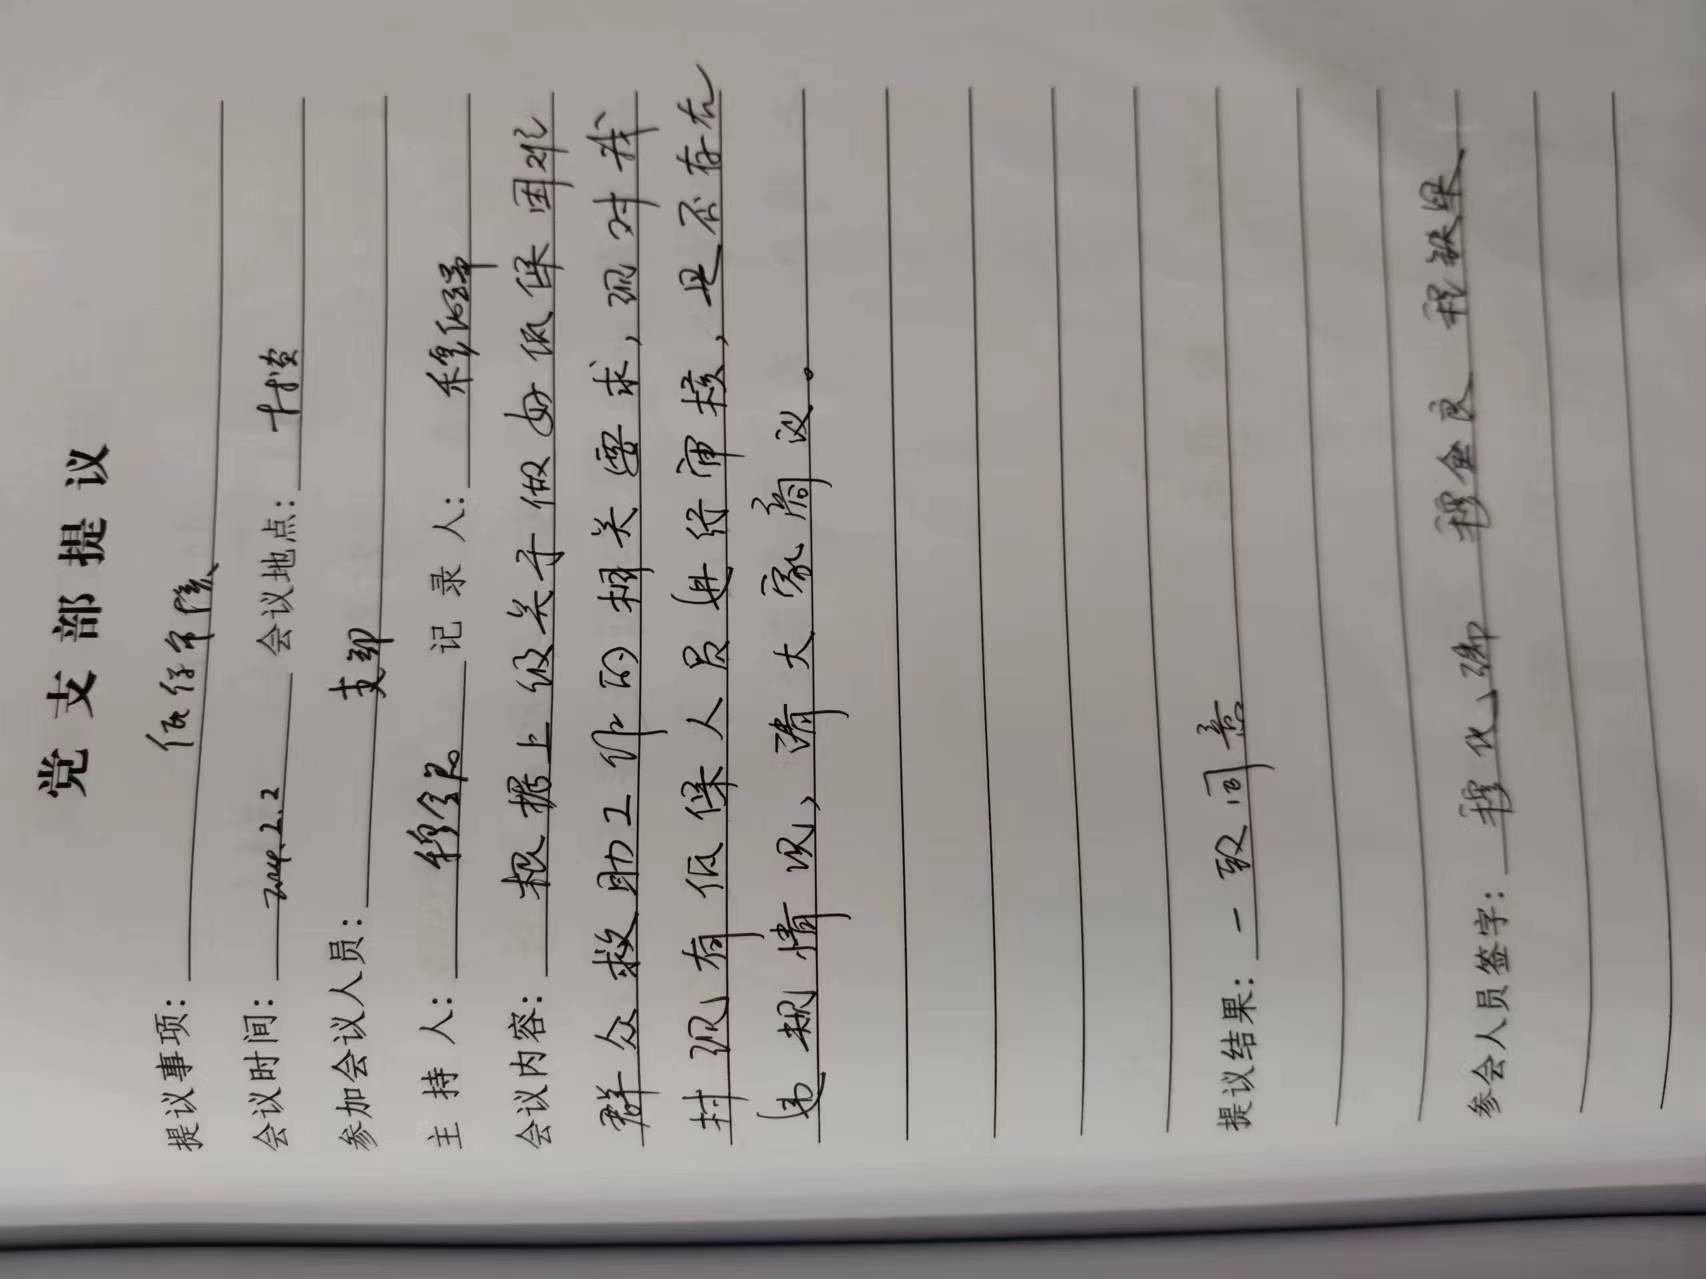 党支部提议
提议事项：低保审核
会议时间：2024.2.2 会议地点：村资
参加会议人员：支部
主持人：穆金良 记录人：
会议内容：根据上级关于做好低保困难
群众救助工作的相关要求，现对我
村现有低保人员进行审核，是否存在
违规情况，请大家商议。
提议结果：一致同意
参会人员签字：穆金良